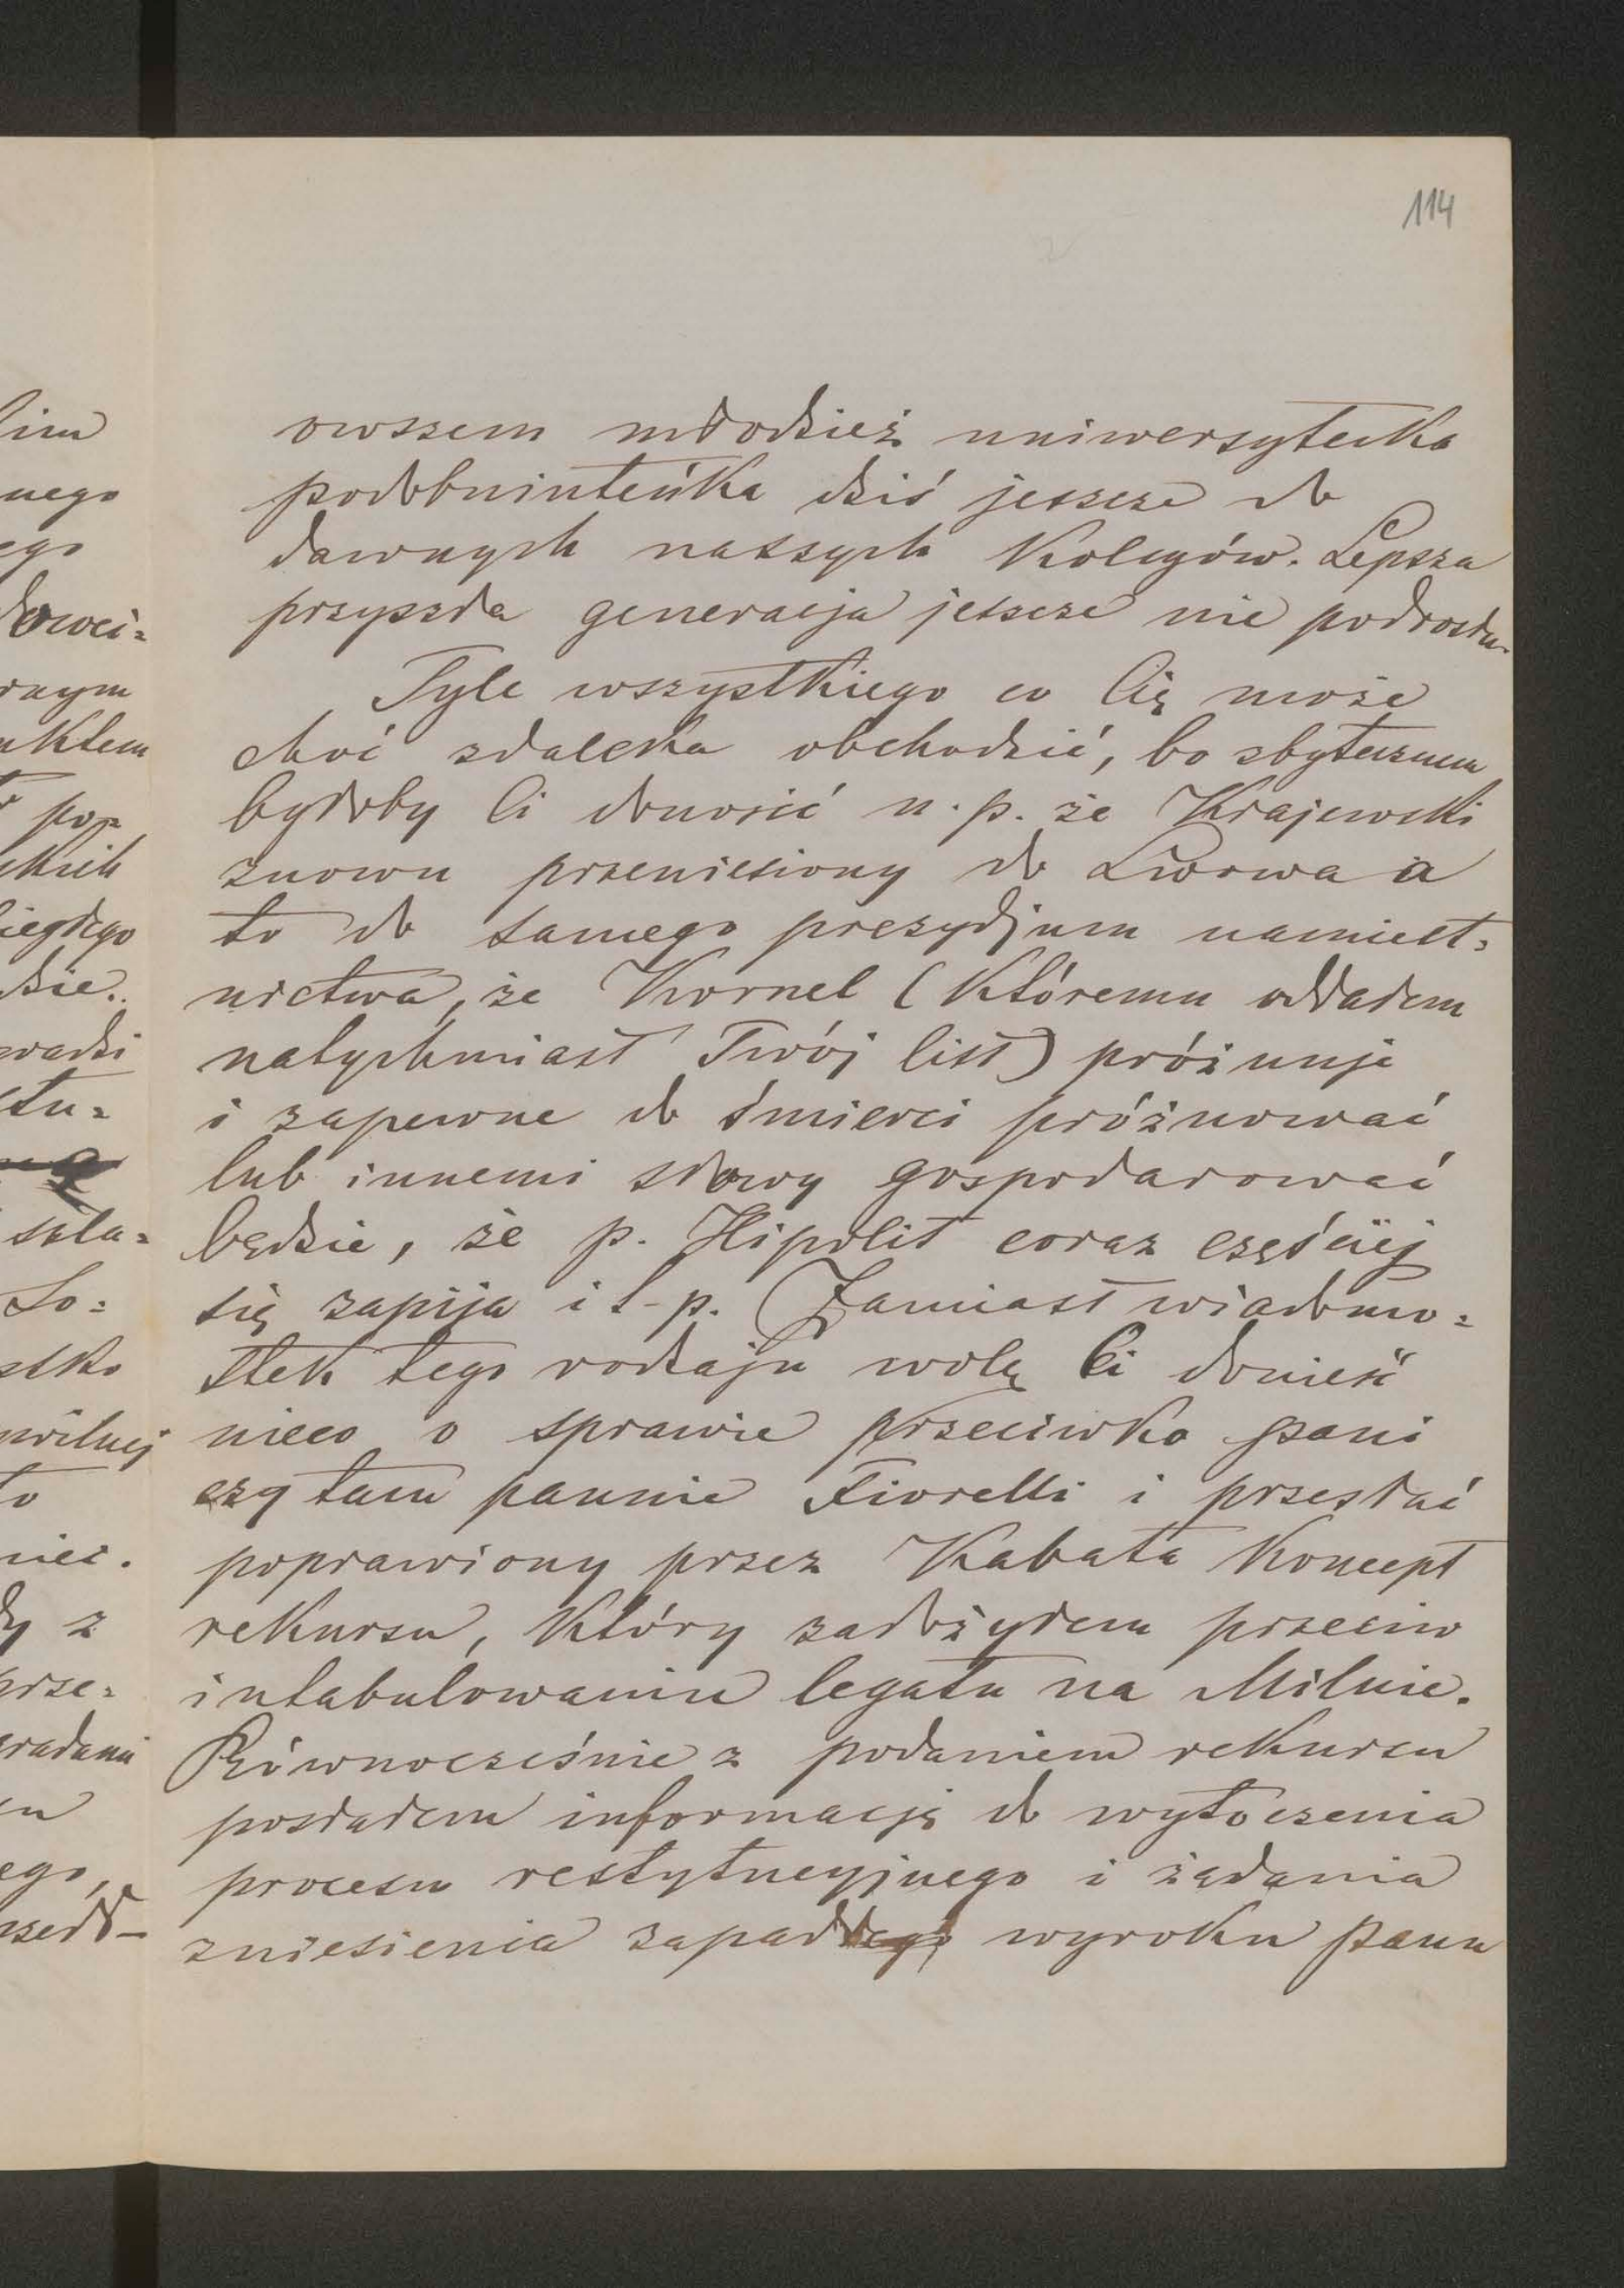 114
owszem młodzież uniwersytecka
podobniuteńka dziś jeszcze do
dawnych naszych kolegów. Lepsza
przyszła generacja jeszcze nie podrosła.
Tyle wszystkiego co Cię może
choć zdaleka obchodzić, bo zbytecznem
byłoby Ci donosić n.p. że Krajewski
znowu przeniesiony do Lwowa a
to do samego prezydjum namiest=
nictwa, że Kornel (któremu oddałem
natychmiast Twój list) próżnuje
i zapewne do śmierci próżnować
lub innemi słowy gospodarować
będzie, że p. Hipolit coraz częściej
się zapija i t-p. Zamiast wiadomo=
stek tego rodzaju wolę Ci donieść
nieco o sprawie przeciwko pani
czy tam pannie Fiorelli i przesłać
poprawiony przez Kabata koncept
rekursu, który założyłem przeciw
intabulowaniu legatu na Milnie.
Równocześnie z podaniem rekursu
posłałem informację do wytoczenia
procesu restytucyjnego i żądania
zniesienia zapadłego wyroku panu
lim
nego
ego
łowci=
nktem
pop=
skich
iegłego
dzie.
wadzi
stu=
szla=
Lo=
stko
to
nieć.
z
prze=
ego,
szedł-